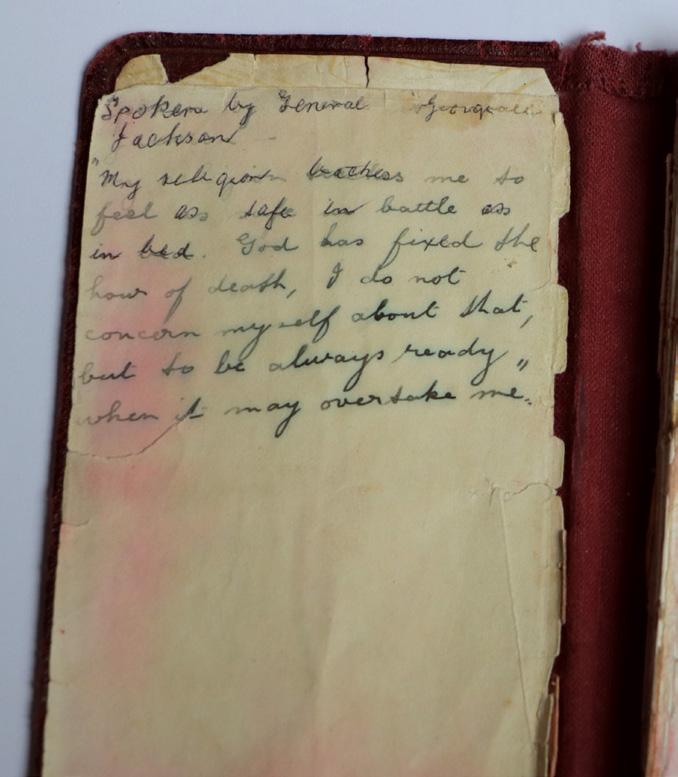 Spoken by General
Jackson
"My religion teaches me to
feel as safe in battle as
in bed. God has fixed the
hour of death, I do not
concern myself about that,
but to be always ready "
when it may overtake me.